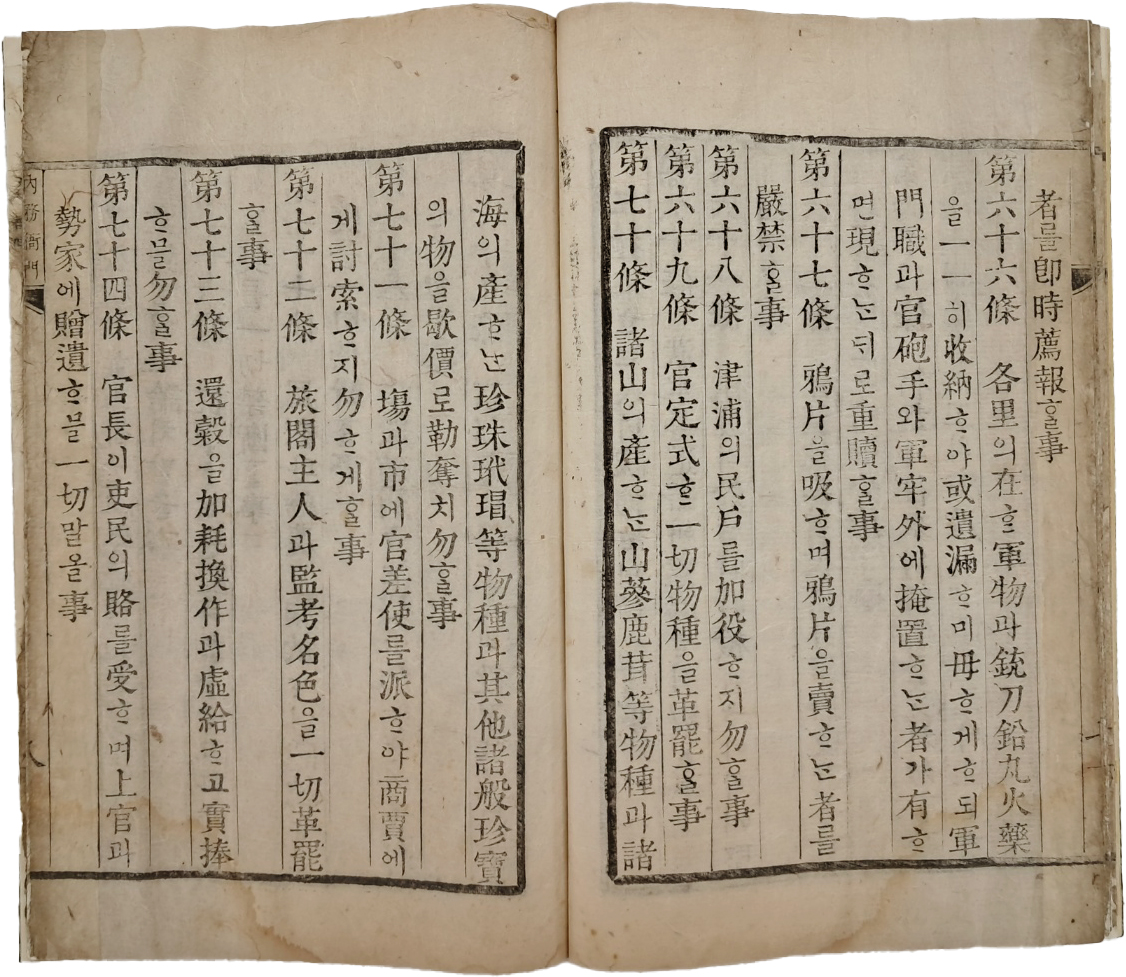 者를卽時薦報ᄒᆞᆯ事
第六十六條 各里의在ᄒᆞᆫ軍物과銃刀鉛丸火藥
을一一히收納ᄒᆞ야或遺漏ᄒᆞ미毋ᄒᆞ게ᄒᆞ되軍
門職과官砲手와軍牢外에掩置ᄒᆞᄂᆞᆫ者가有ᄒᆞ
면現ᄒᆞᄂᆞᆫᄃᆡ로重贖ᄒᆞᆯ事
第六十七條 鴉片을吸ᄒᆞ며鴉片을賣ᄒᆞᄂᆞᆫ者를
嚴禁ᄒᆞᆯ事
第六十八條 津浦의民戶를加役ᄒᆞ지勿ᄒᆞᆯ事
第六十九條 官定式ᄒᆞᆫ一切物種을革罷ᄒᆞᆯ事
第七十條 諸山의產ᄒᆞᄂᆞᆫ山蔘鹿茸等物種과諸
海의產ᄒᆞᄂᆞᆫ珍珠玳瑁等物種과其他諸般珍寶
의物을歇價로勒奪치勿ᄒᆞᆯ事
第七十一條 場과市에官差使를派ᄒᆞ야商賈에
게討索ᄒᆞ지勿ᄒᆞ게ᄒᆞᆯ事
第七十二條 旅閣主人과監考名色을一切革罷
ᄒᆞᆯ事
第七十三條 還穀을加耗換作과虛給ᄒᆞ고實捧
ᄒᆞ믈勿ᄒᆞᆯ事
第七十四條 官長이吏民의賂를受ᄒᆞ며上官과
勢家에贈遺ᄒᆞ믈一切말올事
內務衙門
八